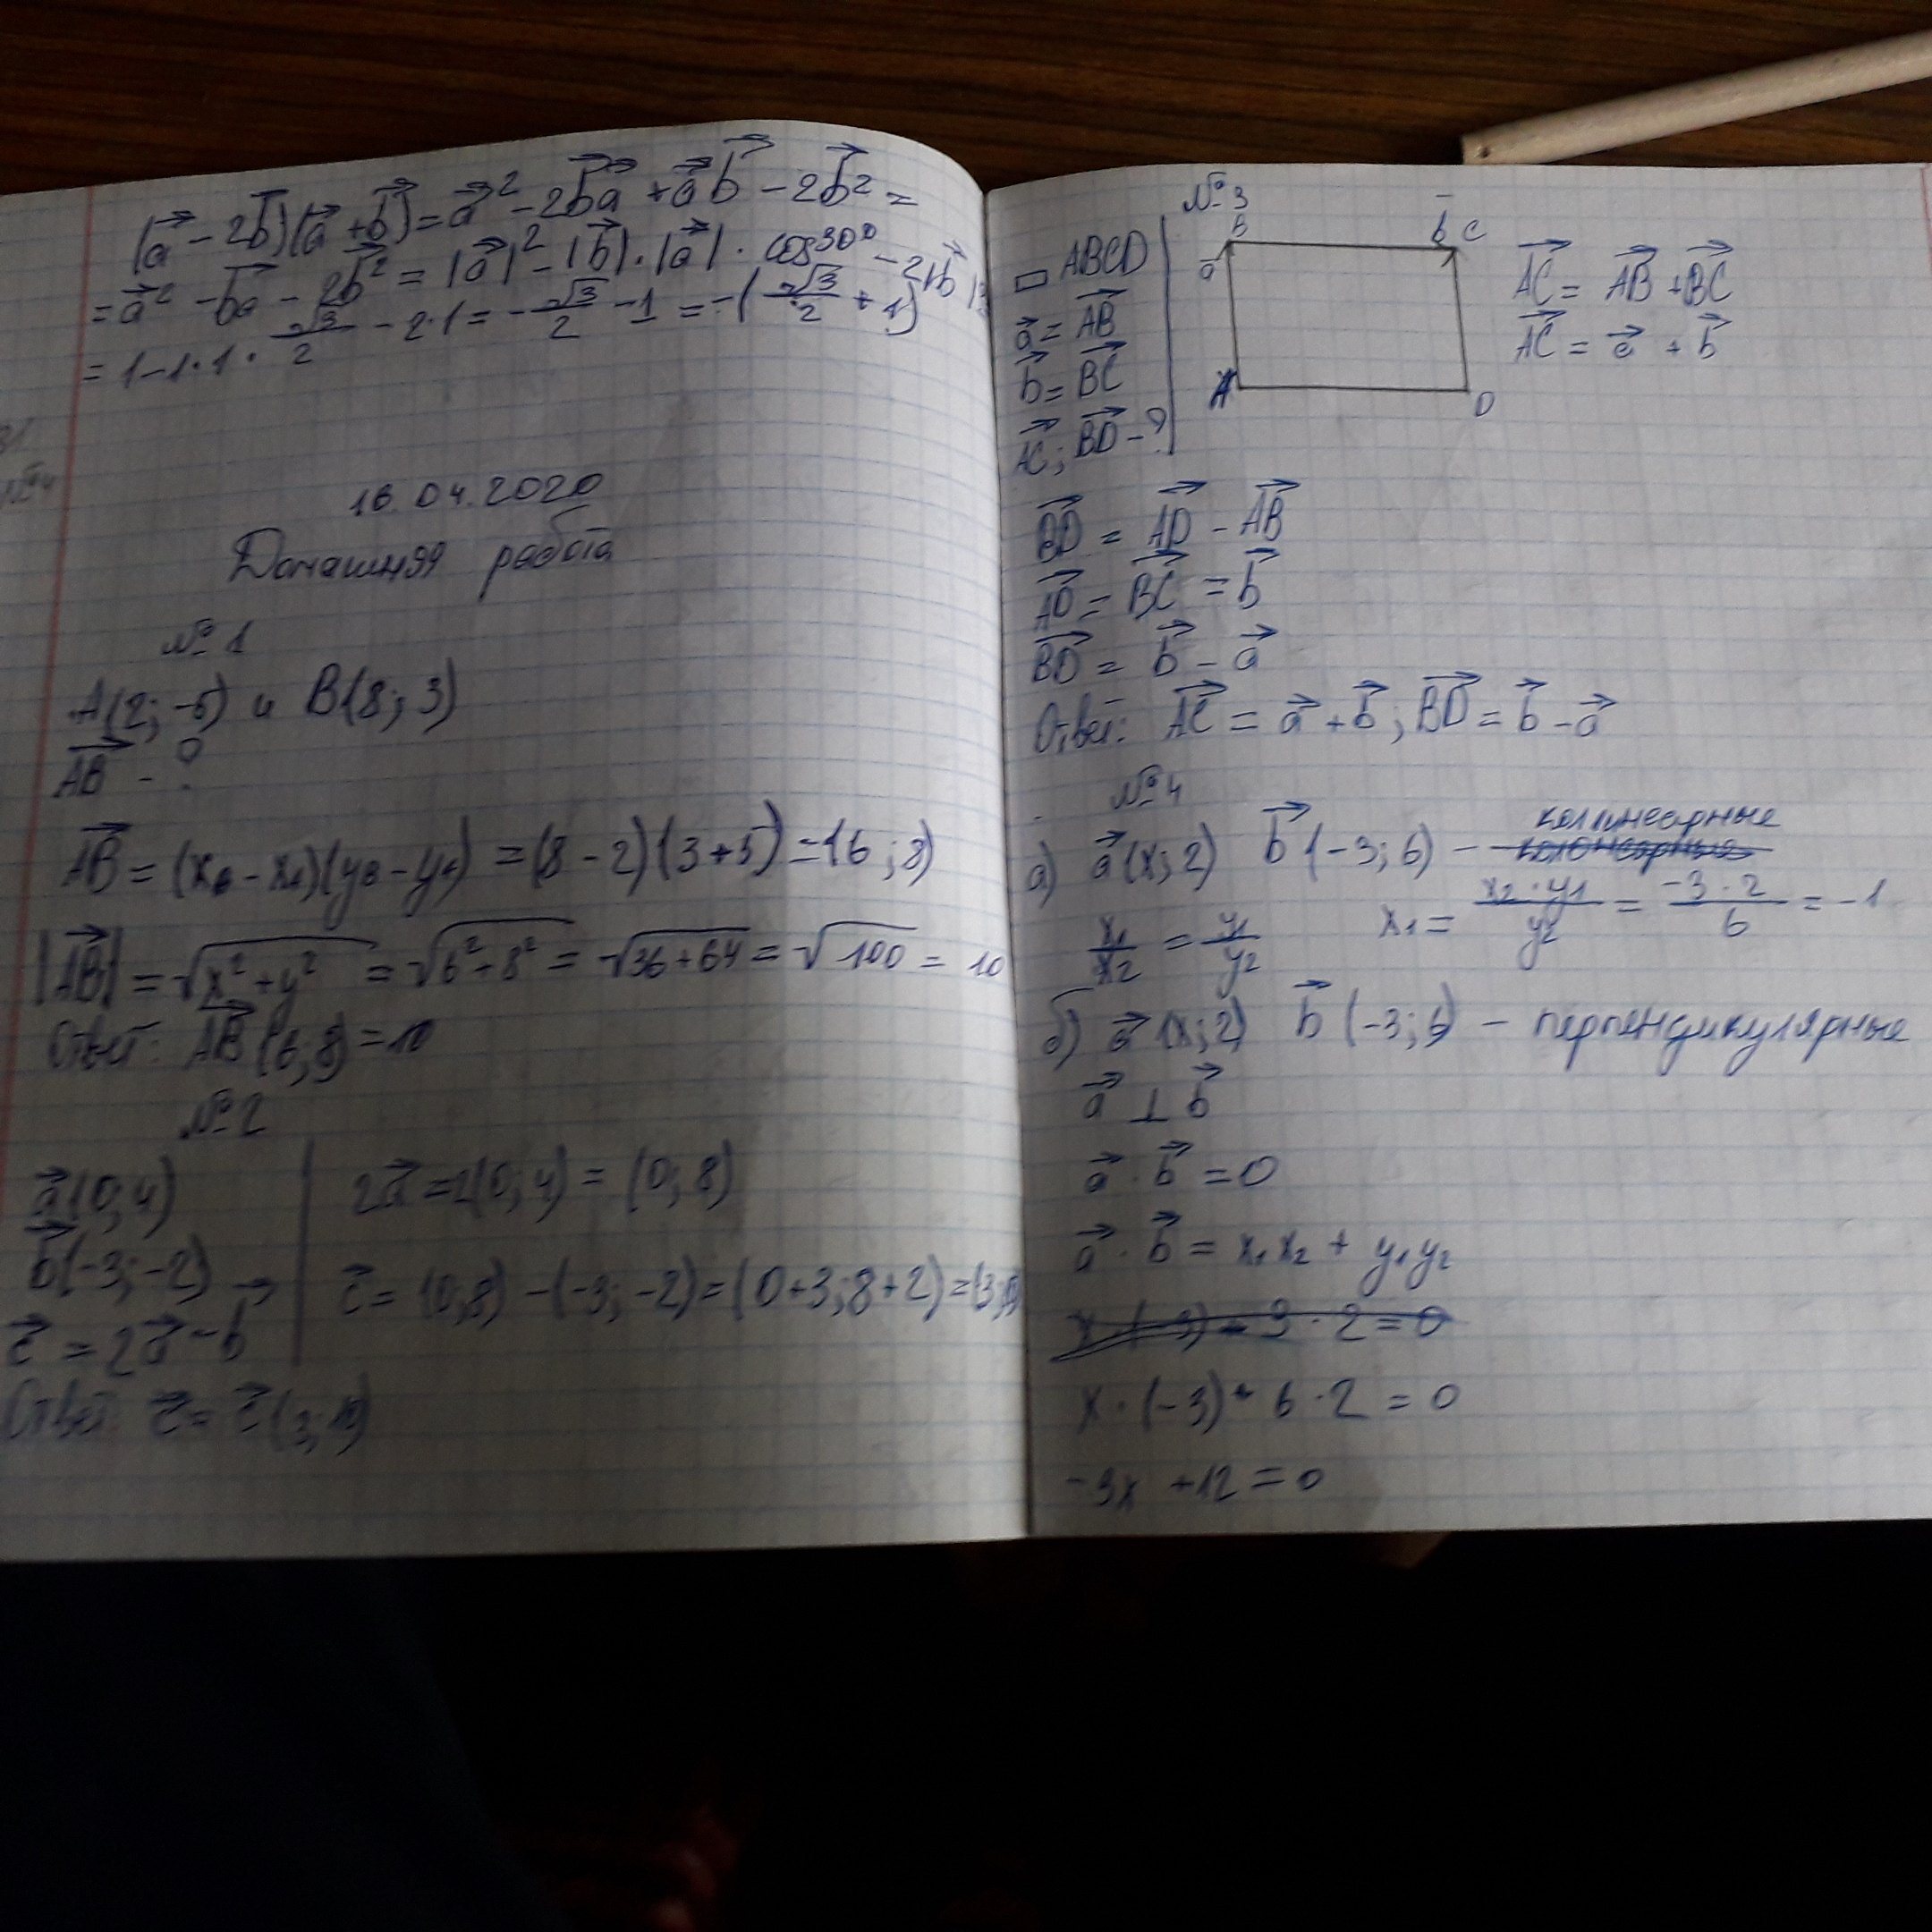 (a⃗ - 2b⃗)(a⃗ + b⃗) = a⃗² - 2b⃗a⃗ + a⃗b⃗ - 2b⃗² =
= a⃗² - b⃗a⃗ - 2b⃗² = |a⃗|² - |b⃗|·|a⃗|·cos30° - 2|b⃗|²
= 1-1·1·√3/2 - 2·1 = -√3/2 - 1 = -(√3/2 + 1)
16.04.2020
Домашняя работа
№1
A(2; -5) и B(8; 3)
AB⃗ - ?
AB⃗ = (xв - xа)(yв - yа) = (8 - 2)(3+5) = (6 ; 8)
|AB⃗| = √x² + y² = √6² + 8² = √36+64 = √100 = 10
Ответ: AB⃗ (6; 8) = 10
№2
a⃗(0; 4)
b⃗(-3; -2)
c⃗ = 2a⃗ - b⃗
2a⃗ = 2(0; 4) = (0; 8)
c⃗ = (0; 8) - (-3; -2) = (0+3; 8+2) = (3; 10)
Ответ: c⃗ = c⃗ (3; 10)
№3
▭ ABCD
a⃗ = AB⃗
b⃗ = BC⃗
AC⃗; BD⃗ - ?
B b C
a
A D
AC⃗ = AB⃗ + BC⃗
AC⃗ = a⃗ + b⃗
BD⃗ = AD⃗ - AB⃗
AD⃗ = BC⃗ = b⃗
BD⃗ = b⃗ - a⃗
Ответ: AC⃗ = a⃗ + b⃗; BD⃗ = b⃗ - a⃗
№4
а) a⃗ (x; 2) b⃗ (-3; 6) - коллинеарные
x₁/x₂ = y₁/y₂ x₁ = x₂·y₁/y₂ = -3·2/6 = -1
б) a⃗ (x; 2) b⃗ (-3; 6) - перпендикулярные
a⃗ ⊥ b⃗
a⃗ · b⃗ = 0
a⃗ · b⃗ = x₁x₂ + y₁y₂
x · (-3) + 6 · 2 = 0
-3x + 12 = 0